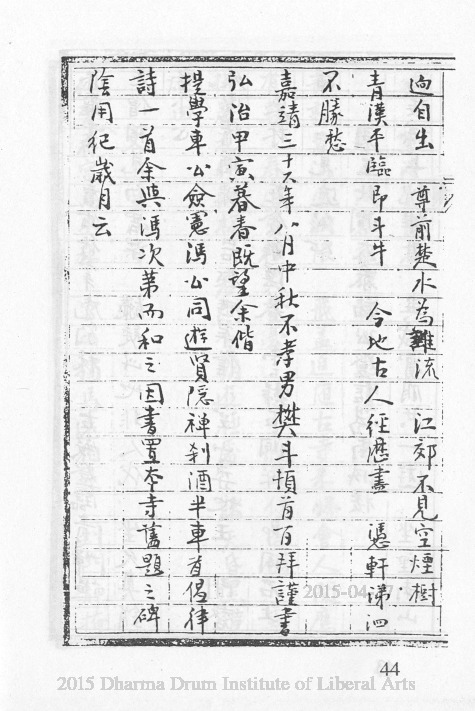 迥自出 尊前楚水為難流 江郊不見空煙樹
青漢平臨即斗牛 今地古人經歷盡 憑軒涕泗
不勝愁
嘉靖三十六年八月中秋不孝男樊斗頓首百拜謹書
弘治甲寅暮春既望余偕
提學車公僉憲馮公同遊賢隱禅刹酒半車首倡律
詩一首余與馮次第而和之因書置本寺舊題之碑
陰用紀歲月云
2015-04-
44
2015 Dharma Drum Institute of Liberal Arts